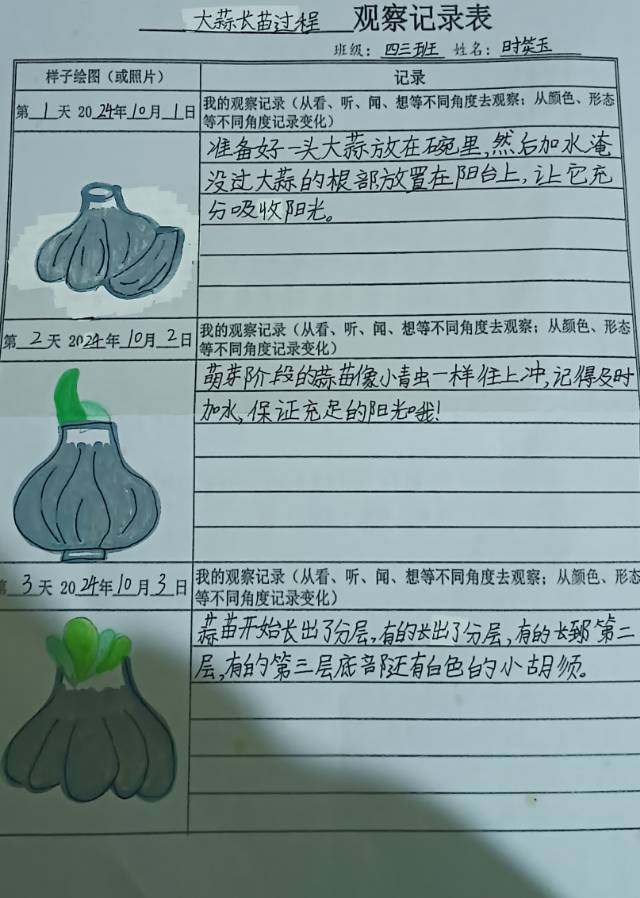 大蒜长苗过程 观察记录表
班级：四三班 姓名：时筴玉
样子绘图（或照片） 记录
第1天 2024年10月1日
我的观察记录（从看、听、闻、想等不同角度去观察；从颜色、形态
等不同角度记录变化）
准备好一头大蒜放在碗里,然后加水淹
没过大蒜的根部放置在阳台上,让它充
分吸收阳光。
第2天 2024年10月2日
我的观察记录（从看、听、闻、想等不同角度去观察；从颜色、形态
等不同角度记录变化）
萌芽阶段的蒜苗像小青虫一样往上冲,记得及时
加水,保证充足的阳光哦!
第3天 2024年10月3日
我的观察记录（从看、听、闻、想等不同角度去观察；从颜色、形态
等不同角度记录变化）
蒜苗开始长出了分层,有的长出了分层,有的长到第二
层,有的第三层底部还有白色的小胡须。